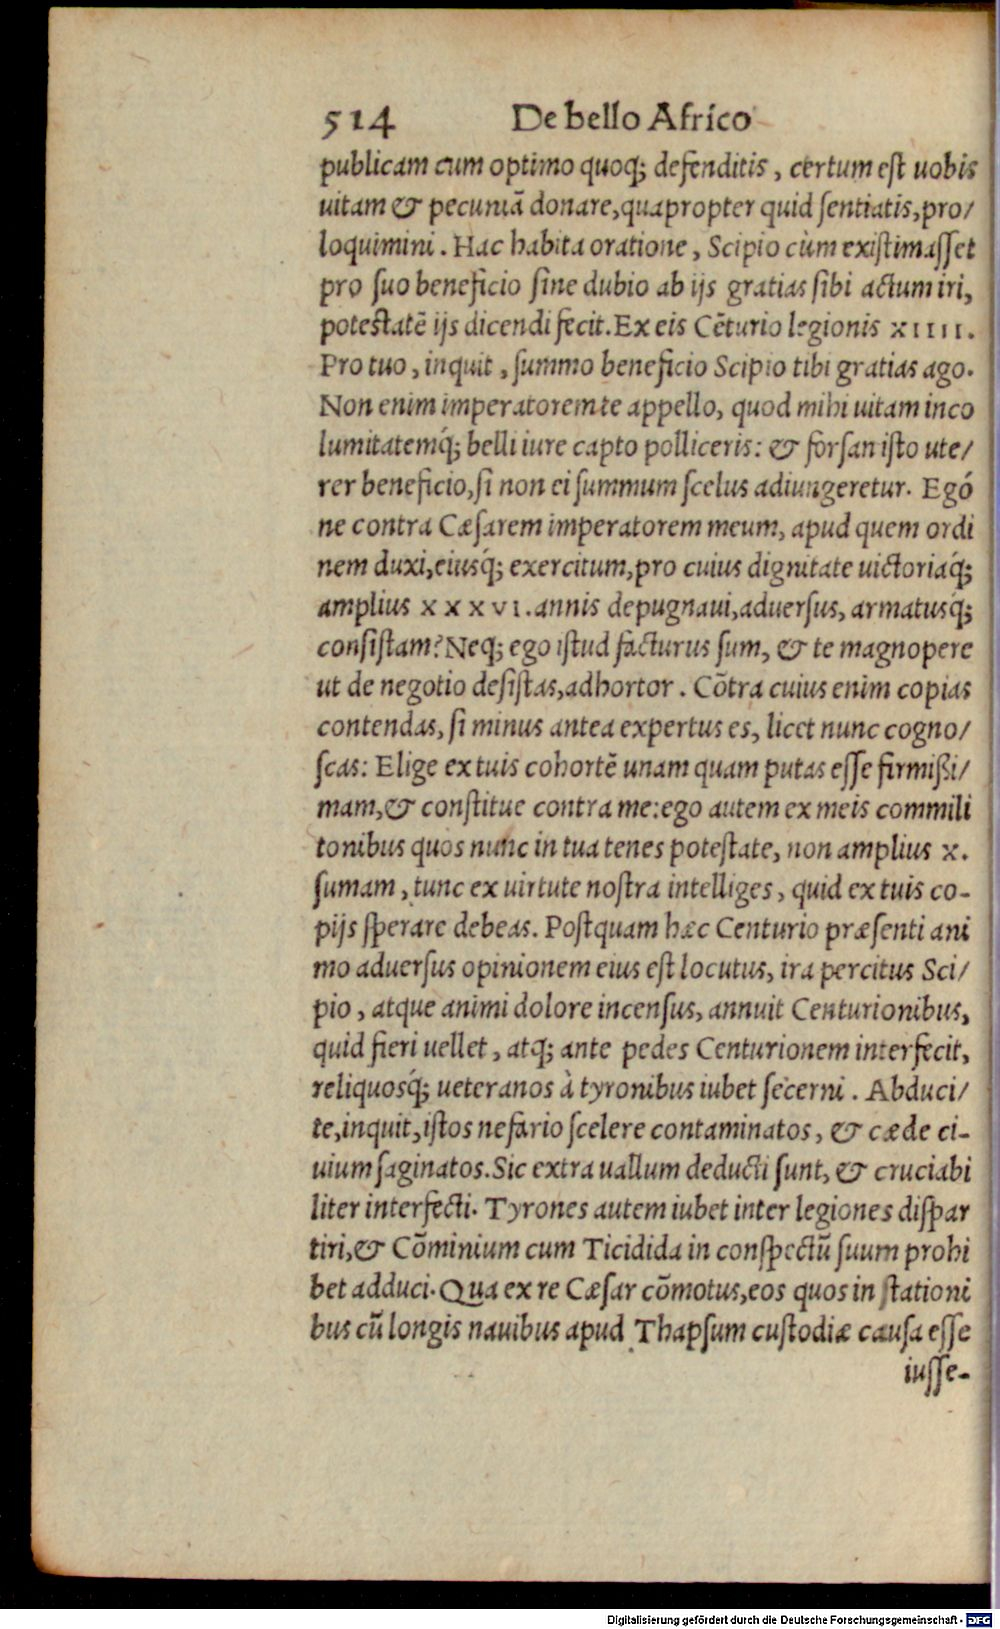 514 De bello Africo
publicam cum optimo quoq; defenditis, certum est uobis
uitam & pecuniā donare, quapropter quid sentiatis, pro/
loquimini. Hac habita oratione, Scipio cùm existimasset
pro suo beneficio sine dubio ab ijs gratias sibi actum iri,
potestatē ijs dicendi fecit. Ex eis Cēturio legionis XIIII.
Pro tuo, inquit, summo beneficio Scipio tibi gratias ago.
Non enim imperatorem te appello, quod mihi uitam inco
lumitatemq́; belli iure capto polliceris: & forsan isto ute/
rer beneficio, si non ei summum scelus adiungeretur. Egó
ne contra Cæsarem imperatorem meum, apud quem ordi
nem duxi, eiusq́; exercitum, pro cuius dignitate uictoriaq́;
amplius XXXVI. annis depugnaui, aduersus, armatusq́;
consistam? Neq; ego istud facturus sum, & te magnopere
ut de negotio desistas, adhortor. Cōtra cuius enim copias
contendas, si minus antea expertus es, licet nunc cogno/
scas: Elige ex tuis cohortē unam quam putas esse firmißi/
mam, & constitue contra me: ego autem ex meis commili
tonibus quos nunc in tua tenes potestate, non amplius X.
sumam, tunc ex uirtute nostra intelliges, quid ex tuis co-
pijs sperare debeas. Postquam hæc Centurio præsenti ani
mo aduersus opinionem eius est locutus, ira percitus Sci/
pio, atque animi dolore incensus, annuit Centurionibus,
quid fieri uellet, atq; ante pedes Centurionem interfecit,
reliquosq́; ueteranos à tyronibus iubet secerni. Abduci/
te, inquit, istos nefario scelere contaminatos, & cæde ci-
uium saginatos. Sic extra uallum deducti sunt, & cruciabi
liter interfecti. Tyrones autem iubet inter legiones dispar
tiri, & Cōminium cum Ticidida in conspectū suum prohi
bet adduci. Qua ex re Cæsar cōmotus, eos quos in stationi
bus cū longis nauibus apud Thapsum custodiæ causa esse
iusse-
Digitalisierung gefördert durch die Deutsche Forschungsgemeinschaft - DFG